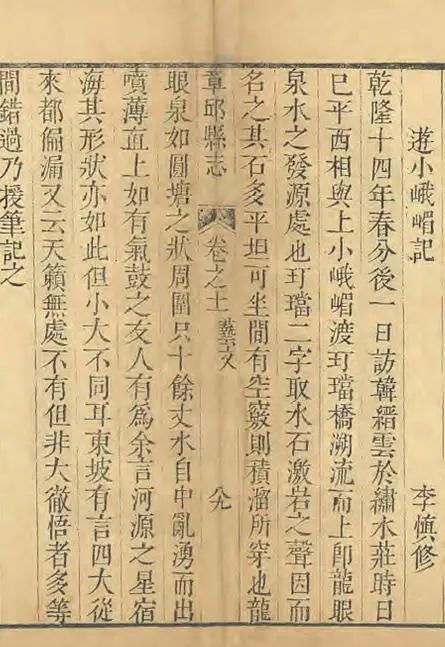 遊小峨嵋記 李慎修
乾隆十四年春分後一日訪韓縉雲於繡水莊時日
巳平西相與上小峨嵋渡玎璫橋溯流而上卽龍眼
泉水之發源處也玎璫二字取水石激岩之聲因而
名之其石多平坦可坐間有空竅則積溜所穿也龍
章邱縣志 卷之十 藝文 八九
眼泉如圓塘之狀周圍只十餘丈水自中亂湧而出
噴薄直上如有氣鼓之友人有為余言河源之星宿
海其形狀亦如此但小大不同耳東坡有言四大從
來都偏漏又云天籟無處不有但非大徹悟者多等
間錯過乃援筆記之